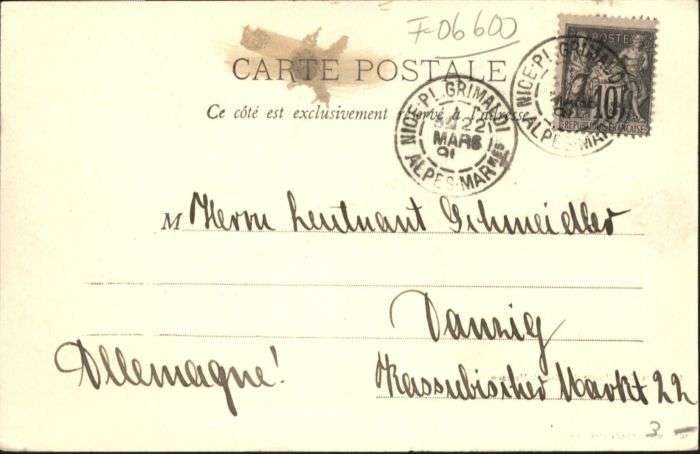 F-06600
CARTE POSTALE
Ce côté est exclusivement réservé à l'adresse
POSTE
10
NICE-PL. GRIMALDI
22
MARS
91
ALPES-MARMES
NICE-PL. GRIMALDI
ALPES-MAR
M Herrn Leutnant Schmeidler
Danzig
Allemagne!
Kassubischer Markt 22
3 -